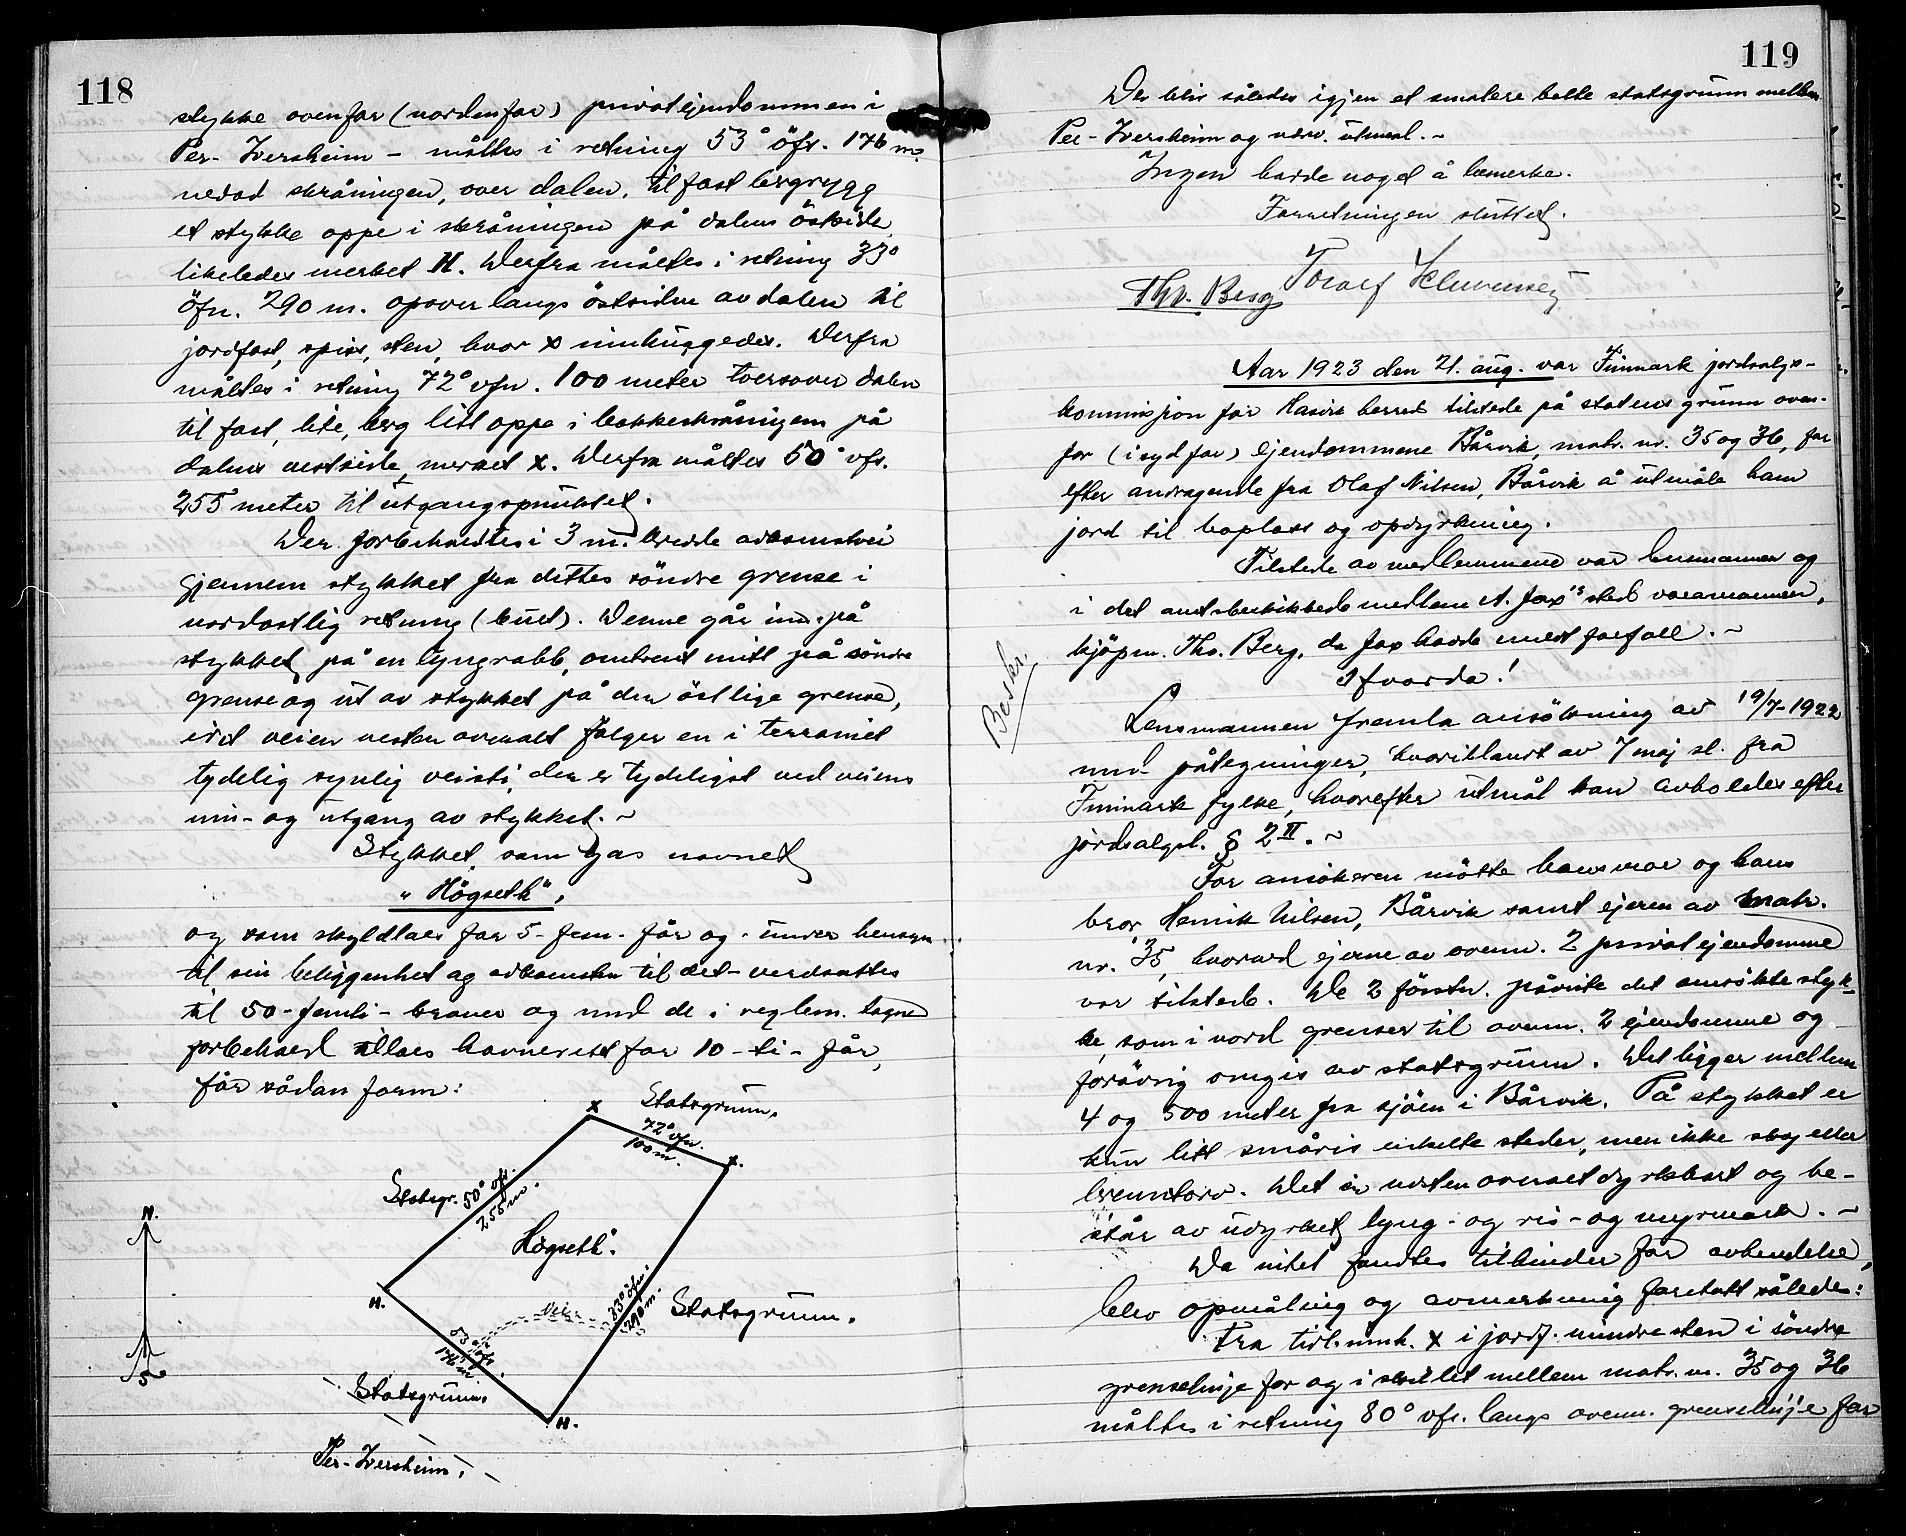 118
stykke ovenfor (nordenfor) privatejendommen i
Per-Iversheim – måltes i retning 53° öfs. 176 m.
nedad skråningen, over dalen, til fast bergrygg
et stykke oppe i skråningen på dalens östside,
likeledes merket H. Derfra måltes i retning 33°
öfn. 290 m. opover langs östsiden av dalen til
jordfast, spiss, sten, hvor x innhuggedes. Derfra
måltes i retning 72° vfn. 100 meter tversover dalen
til fast, lite, berg litt oppe i bakkeskråningen på
dalens vestside, merket x. Derfra måltes 50° vfs.
255 meter til utgangspunktet.
Der forbeholdtes i 3 m. bredde adkomstvei
gjennem stykket fra dettes söndre grense i
nordostlig retning (buet). Denne går inn på
stykket på en lyngrabb, omtrent mitt på söndre
grense og ut av stykket på den östlige grense,
idet veien nesten overalt fölger en i terrainet
tydelig synlig veisti, der er tydeligst ved veiens
inn- og utgang av stykket. ~
Stykket, som gas navnet
"Högseth",
og som skyldlaes for 5 - fem - för og - under hensyn
til sin beliggenhet og adkomsten til det - verdsattes
til 50 - femti - kroner og med de i reglem. tagne
forbehold tillaes havneret for 10 - ti - får,
får sådan form:
x Statsgrunn.
72° vfn.
100 m.
x.
Statsgr. 50° vfs.
255 m.
N.
Högseth.
H.
Vei
33° öfn.
290 m.
Statsgrunn.
53° öfs.
176 m
S.
Statsgrunn.
H.
Per-Iversheim.
119
Der blir således igjen et smalere belte statsgrunn mellem
Per-Iversheim og nærv. utmål. ~
Ingen hadde noget å bemerke.
Forretningen sluttet.
Thv. Berg
Aar 1923 den 21. aug. var Finnmark jordsalgs-
kommisjon for Hasvik herred tilstede på statens grunn oven-
for (i syd for) ejendommene Bårvik, matr. nr. 35 og 36, for
efter andragende fra Olaf Nilsen, Bårvik å utmåle ham
jord til boplass og opdyrkning.
Tilstede av medlemmene var lensmannen og
i det amtsbeskikkede medlem A. Jax's sted varamannen,
kjöpm. Thv. Berg, da Jax hadde meldt forfall. ~
Beskr.
Hvorda!
Lensmannen fremla ansökning av 19/7-1922
med påtegninger, hvoriblandt av 7 maj sl. fra
Finnmark fylke, hvorefter utmål kan avholdes efter
jordsalgsl. § 2 II. ~
For ansökeren mötte hans mor og hans
bror Henrik Nilsen, Bårvik samt ejeren av matr.
nr. 35, hvorved ejerne av ovenn. 2 privatejendomme
var tilstede. De 2 förstn. påviste det ansökte styk-
ke, som i nord grenser til ovenn. 2 ejendomme og
forövrig omgis av statsgrunn. Det ligger mellem
4 og 500 meter fra sjöen i Bårvik. På stykket er
kun litt småris enkelte steder, men ikke skog eller
brenntorv. Det er nesten overalt dyrkbart og be-
står av udyrket lyng- og ris- og myrmark. ~
Da intet fandtes tilhinder for avhendelse,
blev opmåling og avmerkning foretatt således:
Fra tidl. innh. x i jordf. mindre sten i söndre
grenselinje for og i skillet mellem matr. nr. 35 og 36
måltes i retning 80° vfs. langs ovenn. grenselinje for